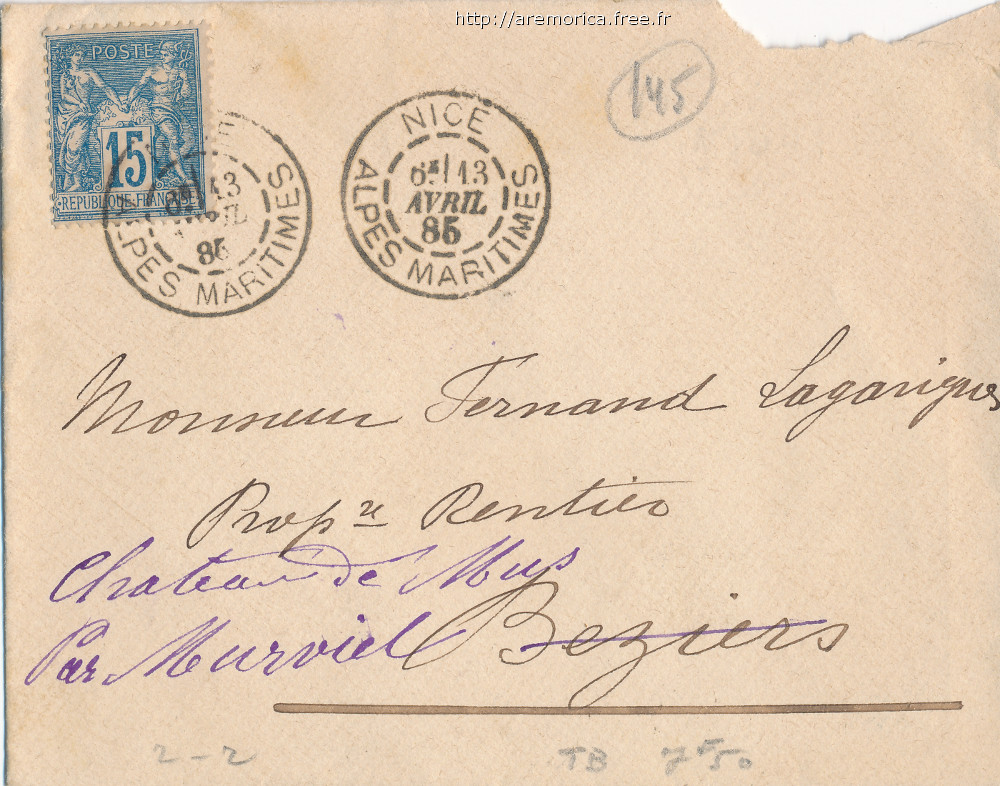 http://aremorica.free.fr
POSTE
15
REPUBLIQUE FRANÇAISE
6E 13
85
ALPES MARITIMES
NICE
6E 13
AVRIL
85
ALPES MARITIMES
145
Monsieur Fernand Lagarigues
Propre Rentier
Chateau de Mus
Par Murviel Beziers
2-2
TB 7F50